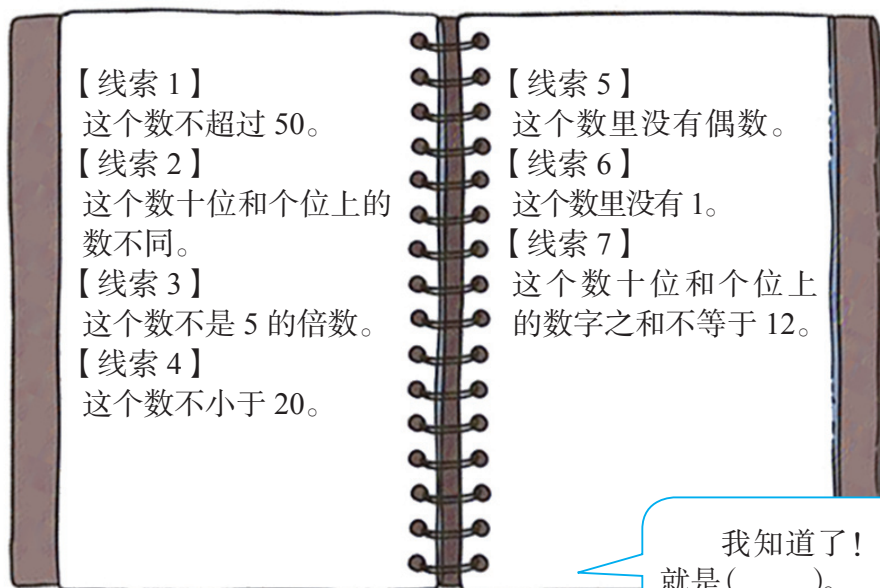 【线索 1】
这个数不超过 50。
【线索 2】
这个数十位和个位上的
数不同。
【线索 3】
这个数不是 5 的倍数。
【线索 4】
这个数不小于 20。
【线索 5】
这个数里没有偶数。
【线索 6】
这个数里没有 1。
【线索 7】
这个数十位和个位上
的数字之和不等于 12。
我知道了!
就是(  )。